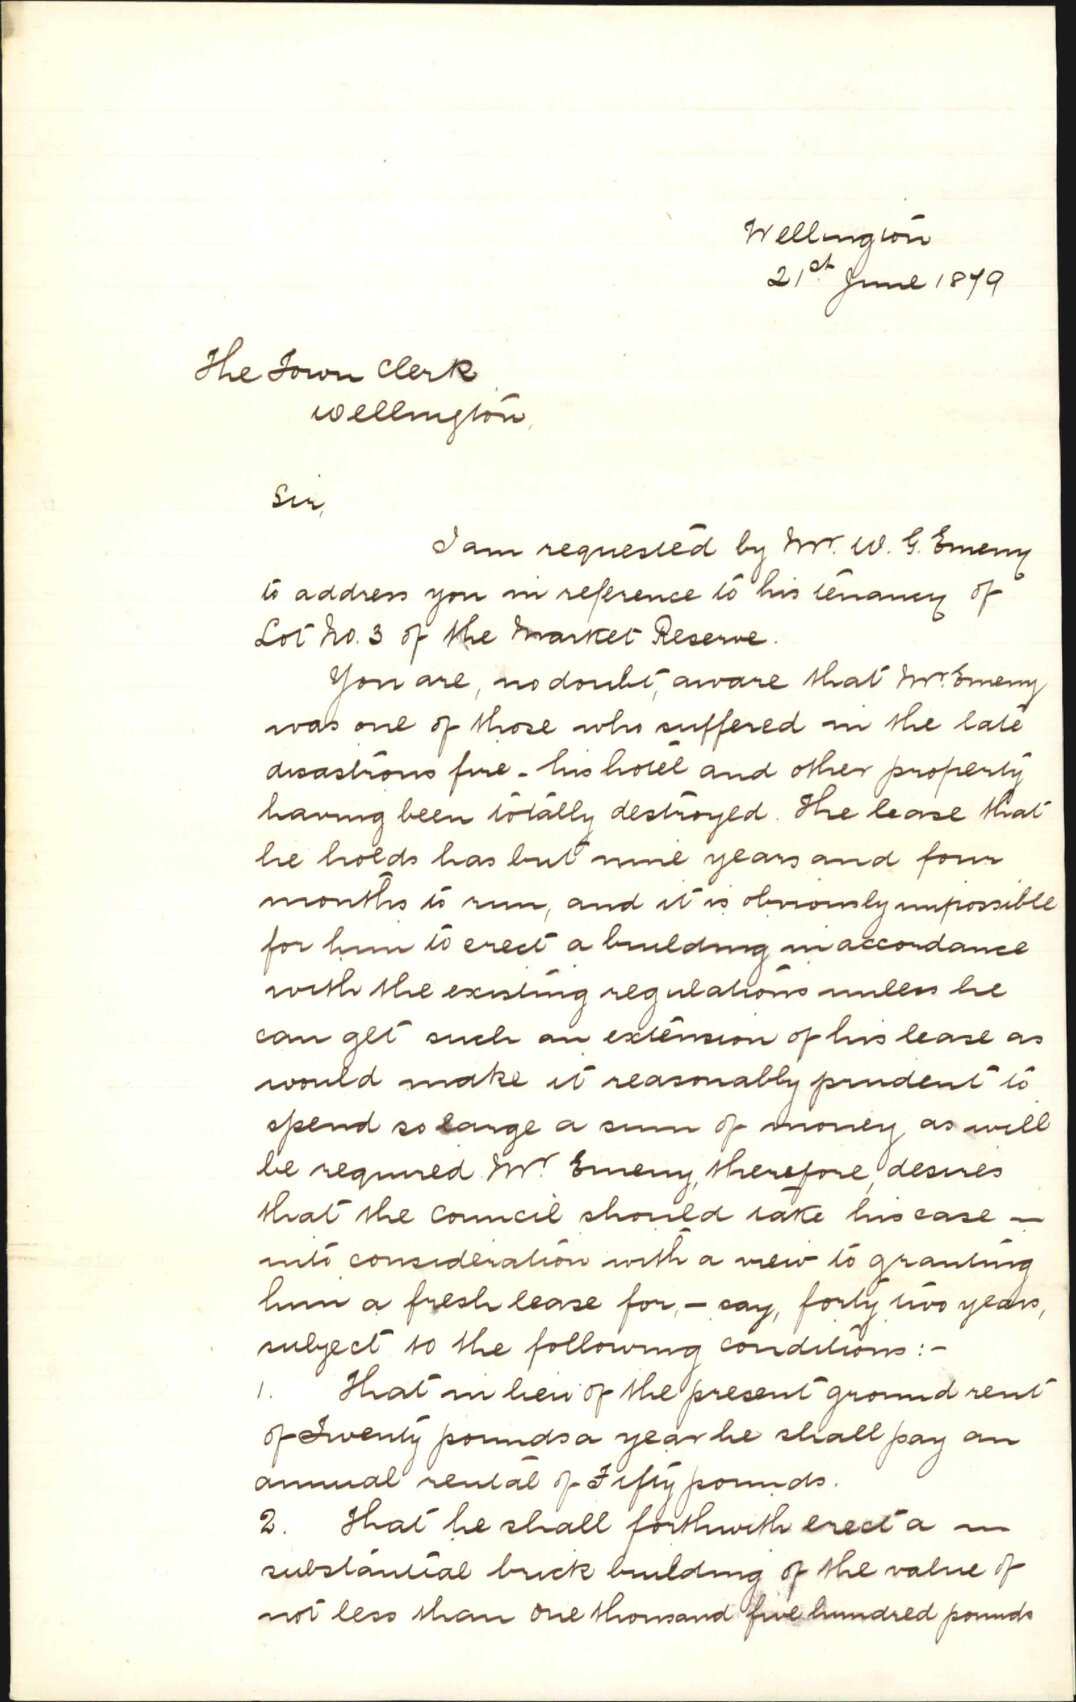 Wellington
21st June 1879
The Town Clerk
Wellington,
Sir,
I am requested by Mr. W. G. Emeny
to address you in reference to his tenancy of
Lot No. 3 of the Market Reserve.
You are, no doubt, aware that Mr. Emeny
was one of those who suffered in the late
disastrous fire - his hotel and other property
having been totally destroyed. The lease that
he holds has but nine years and four
months to run, and it is obviously impossible
for him to erect a building in accordance
with the existing regulations unless he
can get such an extension of his lease as
would make it reasonably prudent to
spend so large a sum of money as will
be required. Mr. Emeny, therefore, desires
that the Council should take his case —
into consideration with a view to granting
him a fresh lease for, - say, forty two years,
subject to the following conditions:-
1. That in lieu of the present ground rent
of Twenty pounds a year he shall pay an
annual rental of Fifty pounds.
2. That he shall forthwith erect a —
substantial brick building of the value of
not less than one thousand five hundred pounds